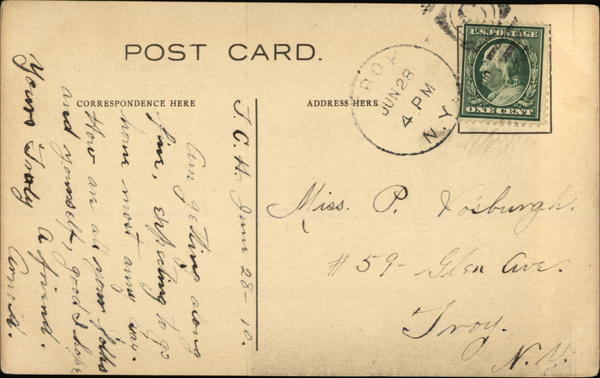 POST CARD.
CORRESPONDENCE HERE
ADDRESS HERE
U.S. POSTAGE
ONE CENT
TROY
JUN 28
4 PM
N.Y.
T. C. H. June 28-10.
Am getting along
fine, expecting to go
home most any day.
How are all your folks
and yourself, good I hope
Yours Truly a friend.
Miss. P. Vosburgh.
#59- Glen Ave.
Troy.
N.Y.